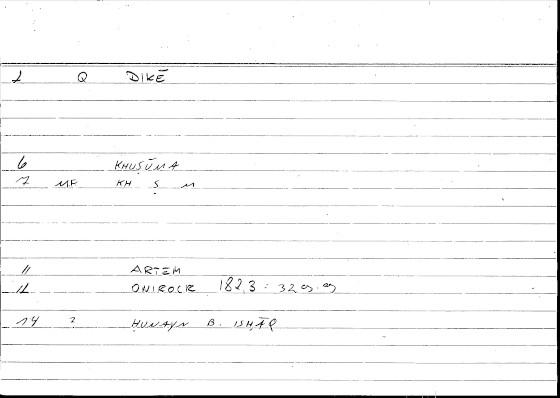 1 Q DIKĒ
6 KHUṢŪMA
7 MF KH Ṣ M
11 ARTEM
12 ONIROCR 182,3 = 32
14 2 ḤUNAYN B. ISḤĀQ